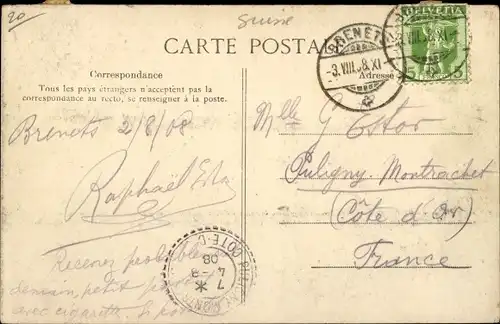 20
Suisse
CARTE POSTALE
HELVETIA
5
BRENETS
-3.VIII.08.XI-
Correspondance
Tous les pays étrangers n'acceptent pas la
correspondance au recto, se renseigner à la poste.
Adresse
Brenets 2/8/08
Mlle G Estor
Puligny-Montrachet
(Côte d'Or)
France
Raphaël
PULIGNY COTE-D
7
4-8
08
Recevez probable
demain, petit
avec cigarette.